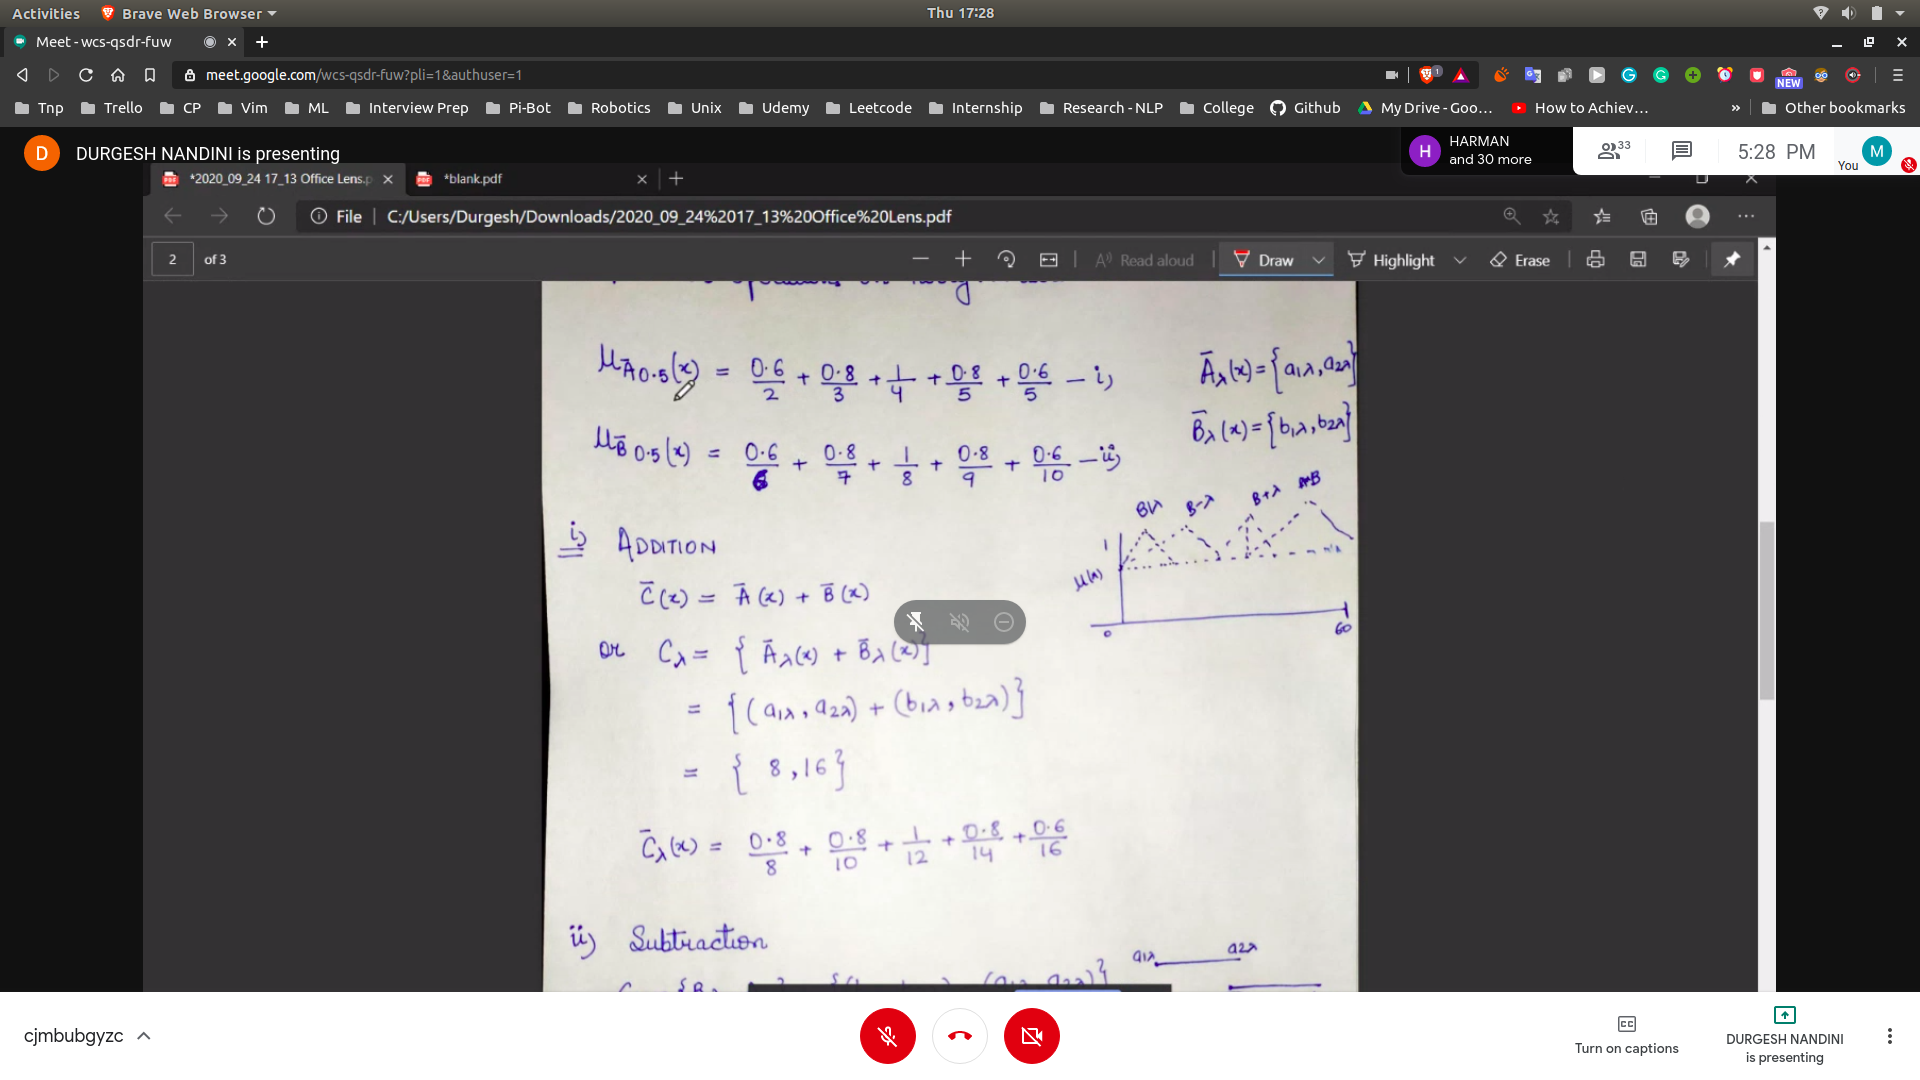 Activities Brave Web Browser Thu 17:28
Meet - wcs-qsdr-fuw
meet.google.com/wcs-qsdr-fuw?pli=1&authuser=1 1 NEW
Tnp Trello CP Vim ML Interview Prep Pi-Bot Robotics Unix Udemy Leetcode Internship Research - NLP College Github My Drive - Goo... How to Achiev... » Other bookmarks
D DURGESH NANDINI is presenting H HARMAN and 30 more 33 5:28 PM You M
*2020_09_24 17_13 Office Lens.p *blank.pdf
File C:/Users/Durgesh/Downloads/2020_09_24%2017_13%20Office%20Lens.pdf
2 of 3 Read aloud Draw Highlight Erase
μĀ0.5(x) = 0.6/2 + 0.8/3 + 1/4 + 0.8/5 + 0.6/5 — i) Āλ(x) = {a1λ, a2λ}
μB̄0.5(x) = 0.6/6 + 0.8/7 + 1/8 + 0.8/9 + 0.6/10 — ii) B̄λ(x) = {b1λ, b2λ}
B-λ B+λ
i) ADDITION 1
μ(x)
C̄(x) = Ā(x) + B̄(x)
0 60
or Cλ = { Āλ(x) + B̄λ(x)}
= {(a1λ, a2λ) + (b1λ, b2λ)}
= { 8, 16}
C̄λ(x) = 0.8/8 + 0.8/10 + 1/12 + 0.8/14 + 0.6/16
ii) Subtraction a1λ a2λ
cjmbubgyzc Turn on captions DURGESH NANDINI is presenting